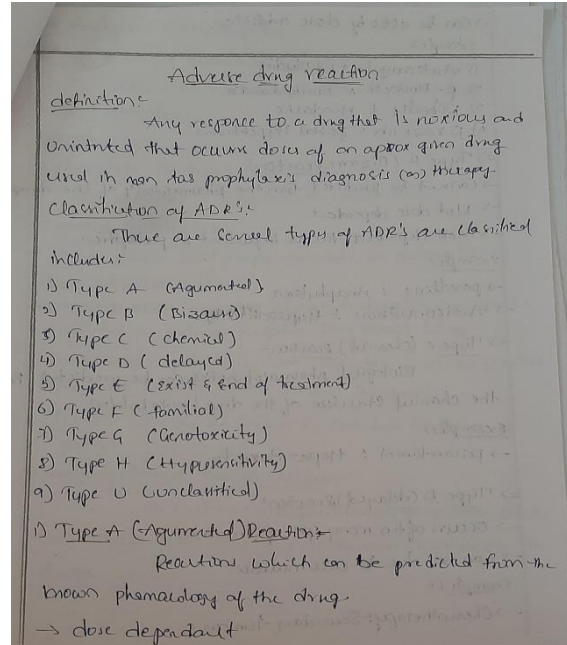 Adverse drug reaction
definition:-
Any responce to a drug that is noxious and
Unintnted that occurs doses of on aprox given drug
used in man tas prophylaxis diagnosis (or) therapy.
Classification of ADR's:-
There are serveel types of ADR's are classified
includes:-
1) Type A (Agumented)
2) Type B (Bizaure)
3) Type C (chemical)
4) Type D (delayed)
5) Type E (Exist & End of treatment)
6) Type F (familial)
7) Type G (Genotoxicity)
8) Type H (Hypersensitivity)
9) Type U (unclassified)
1) Type A (Agumented) Reaction:-
Reactions which can be predicted from the
known phamacology of the drug.
→ dose dependant